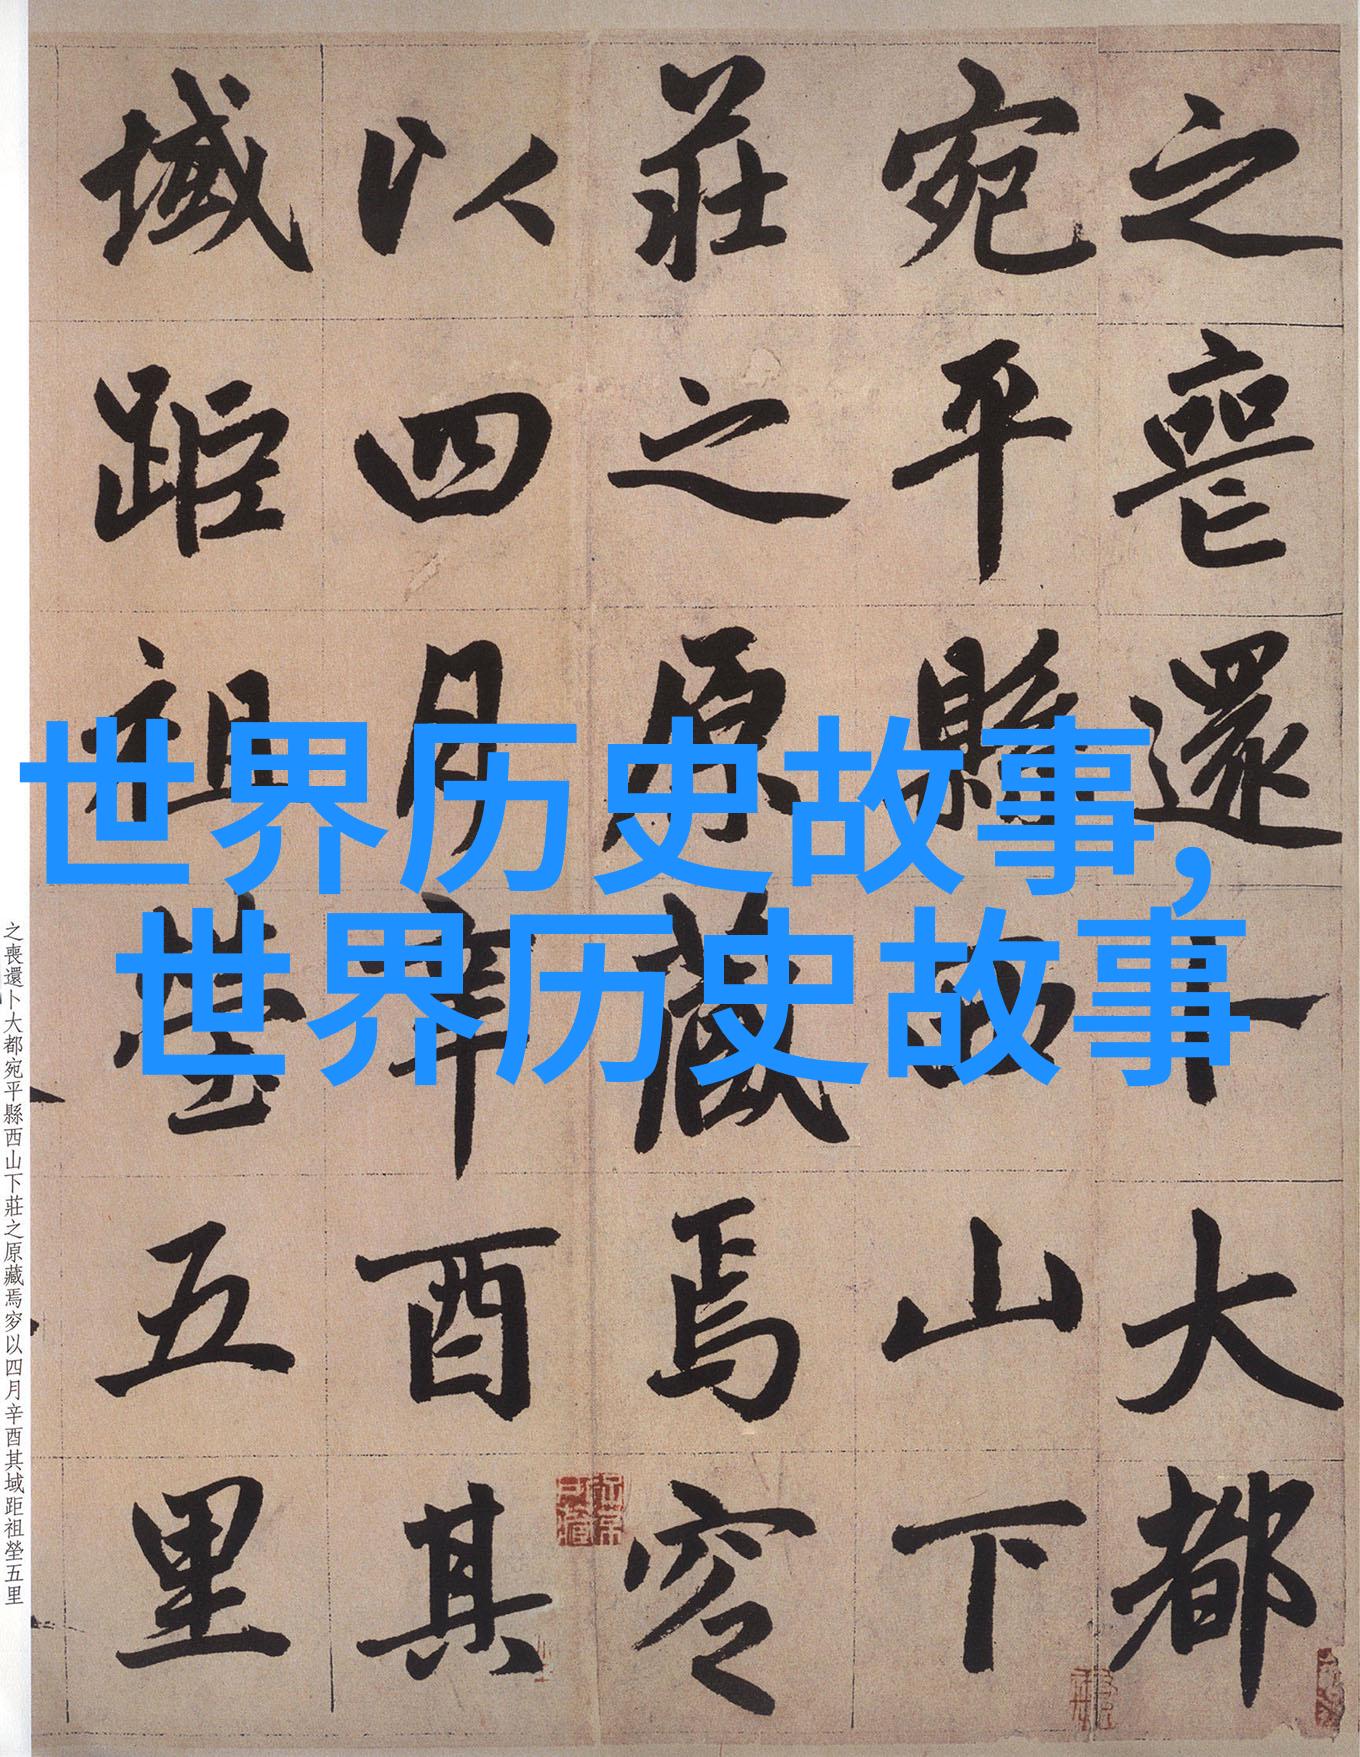 之喪還卜大都
宛平縣西山下
莊之原藏焉穸
以四月辛酉其
域距祖塋五里
世界历史故事,
世界历史故事
之喪還卜大都宛平縣西山下莊之原藏焉穸以四月辛酉其域距祖塋五里